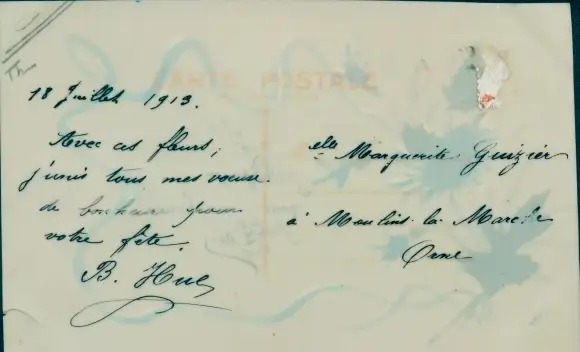 Th
CARTE POSTALE
18 Juillet 1913.
Avec ces fleurs,
j'unis tous mes vœux
de bonheur pour
votre fête.
B. Hue
elle Marguerite Guizier
à Moulins-la-Marche
Orne